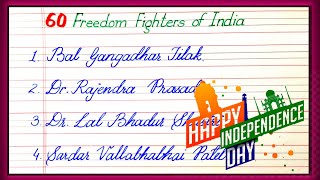 60 Freedom Fighters of India
1. Bal Gangadhar Tilak
2. Dr. Rajendra Prasad
3. Dr. Lal Bhadur
4. Sardar Vallabhabhai Patel
HAPPY
INDEPENDENCE
DAY